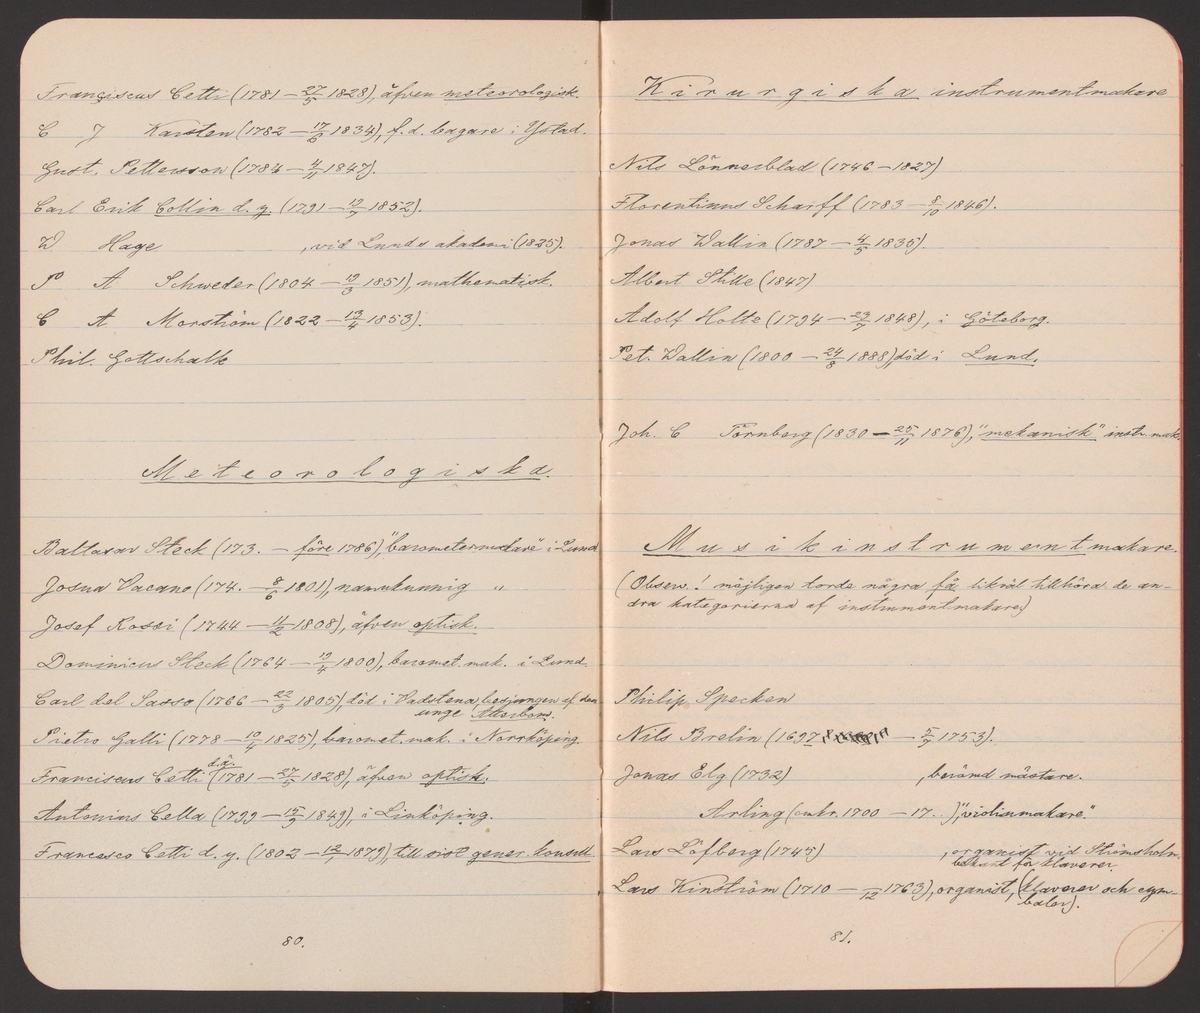 Franciscus Cetti (1781 – 27/5 1828), äfven meteorologisk.
C J Karsten (1782 – 17/6 1834), f.d. bagare i Ystad.
Gust. Pettersson (1784 – 4/11 1847).
Carl Erik Collin d. y. (1791 – 1852).
W Hage , vid Lunds akademi (1825).
P A Schweder (1804 – 1851), mathematisk.
C A Morström (1822 – 13/4 1853).
Phil. Gottschalk
Meteorologiska.
Baltasar Steck (173. – före 1786), "barometermakare" i Lund
Josua Vacano (174. – 8/6 1801), namnkunnig "
Josef Rossi (1744 – 11/2 1808), äfven optisk.
Dominicus Steck (1764 – 1800), baromet. mak. i Lund.
Carl del Sasso (1766 – 22/3 1805), död i Vadstena, besjungen af den
unge Atterbom.
Pietro Galli (1778 – 10/4 1825), baromet. mak. i Norrköping.
Franciscus Cetti d.ä. (1781 – 27/5 1828), äfven optisk.
Antonius Cella (1799 – 15/9 1849), i Linköping.
Francesco Cetti d. y. (1802 – 1879), till sist gener. konsul.
80.
Kirurgiska instrumentmakare
Nils Lönnerblad (1746 – 1827)
Florentinus Scharff (1783 – 8/10 1846).
Jonas Wallin (1787 – 4/5 1835).
Albert Stille (1847)
Adolf Holte (1794 – 23/7 1848), i Göteborg.
Pet. Wallin (1800 – 24/8 1888), död i Lund.
Joh. C Törnberg (1830 – 25/11 1876), "mekanisk" instr. mak.
Musikinstrumentmakare.
(Observ.! möjligen torde några få likväl tillhöra de an-
dra kategorierna af instrumentmakare)
Philip Specken
Nils Brelin (1697 – 5/7 1753).
Jonas Elg (1732) , berömd mästare.
Arling (omkr. 1700 – 17..), "violinmakare."
Lars Löfberg (1745) , organist vid Strömsholm,
bekant för klaverer.
Lars Kinström (1710 – /12 1763), organist, (klaverer och cym-
baler).
81.